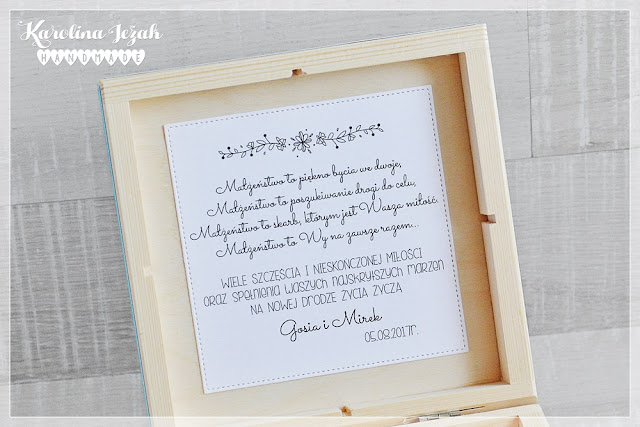 Karolina Jeżak
HANDMADE
Małżeństwo to piękno bycia we dwoje,
Małżeństwo to poszukiwanie drogi do celu,
Małżeństwo to skarb, którym jest Wasza miłość
Małżeństwo to Wy na zawsze razem...
WIELE SZCZĘŚCIA I NIESKOŃCZONEJ MIŁOŚCI
ORAZ SPEŁNIENIA WASZYCH NAJSKRYTSZYCH MARZEŃ
NA NOWEJ DRODZE ŻYCIA ŻYCZĄ
Gosia i Mirek
05.08.2017r.